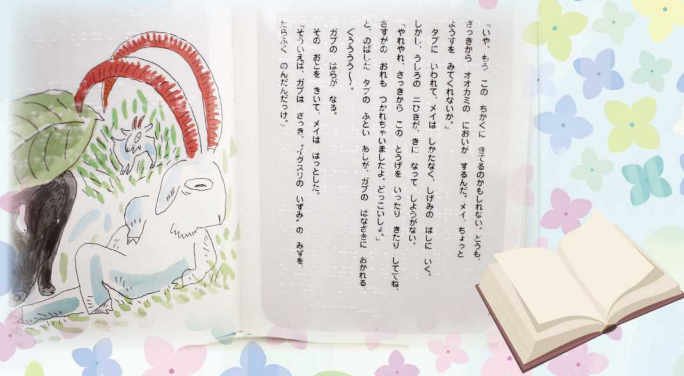 「いや、もう この ちかくに きてるのかもしれない。どうも、
さっきから オオカミの においが するんだ。メイ、ちょっと
ようすを みてくれないか。」
タプに いわれて、メイは しかたなく、しげみの はしに いく。
しかし、うしろの 二ひきが、きに なって しようがない。
「やれやれ、さっきから この とうげを いったり きたり しててね、
さすがの おれも つかれちゃいましたよ。どっこいしょ。」
と、のばした タプの ふとい あしが、ガブの はなさきに おかれる。
ぐぅうううう〜。
ガブの はらが なる。
その おとを きいて、メイは はっとした。
「そういえば、ガブは さっき、“イグスリの いずみ”の みずを、
たらふく のんだんだっけ。」